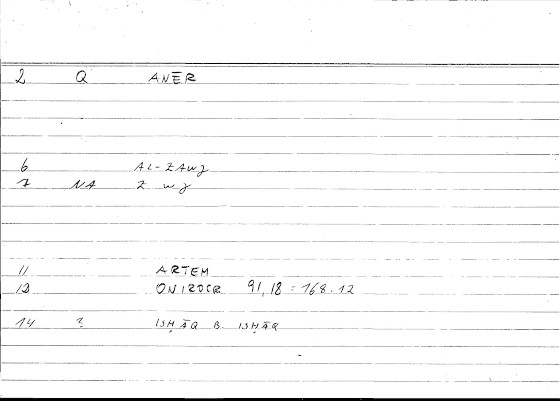 2 Q ANĒR
6 AL-ZAWJ
7 NA Z W J
11 ARTEM
12 ONIROCR 91,18 = 168.12
14 ? ISḤĀQ B. ISḤĀQ